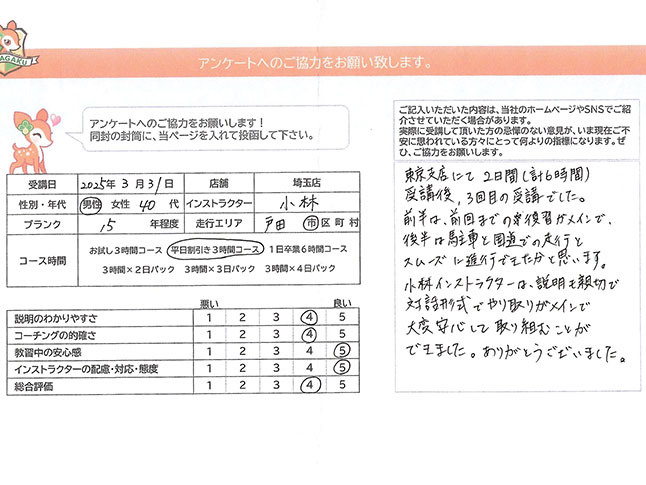 AGAKU
アンケートへのご協力をお願い致します。
アンケートへのご協力をお願いします!
同封の封筒に、当ページを入れて投函して下さい。
受講日 2025年 3月 31日 店舗 埼玉店
性別・年代 男性 女性 40 代 インストラクター 小林
ブランク 15 年程度 走行エリア 戸田 市区町村
コース時間 お試し3時間コース 平日割引き3時間コース 1日卒業6時間コース
3時間×2日パック 3時間×3日パック 3時間×4日パック
悪い 良い
説明のわかりやすさ 1 2 3 4 5
コーチングの的確さ 1 2 3 4 5
教習中の安心感 1 2 3 4 5
インストラクターの配慮・対応・態度 1 2 3 4 5
総合評価 1 2 3 4 5
ご記入いただいた内容は、当社のホームページやSNSでご紹
介させていただく場合があります。
実際に受講して頂いた方の忌憚のない意見が、いま現在ご不
安に思われている方々にとって何よりの指標になります。ぜ
ひ、ご協力をお願いします。
東京支店にて 2日間(計6時間)
受講後、3回目の受講でした。
前半は、前回までの復習がメインで、
後半は駐車と国道での走行と
スムーズに進行できたかと思います。
小林インストラクターは、説明も親切で
対話形式でやり取りがメインで
大変安心して取り組むことが
できました。ありがとうございました。